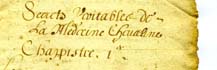 Secrets Veritables de
La Medecine Chevaline
Chappistre. 1